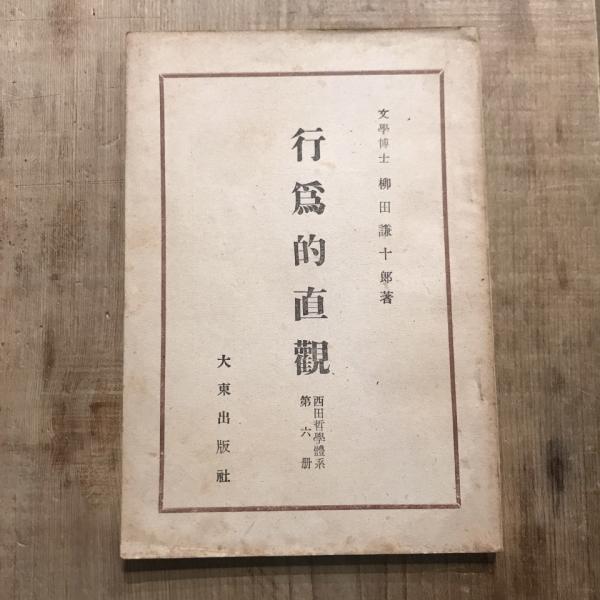 文學博士 柳田謙十郎著
行爲的直觀
西田哲學體系
第六册
大東出版社